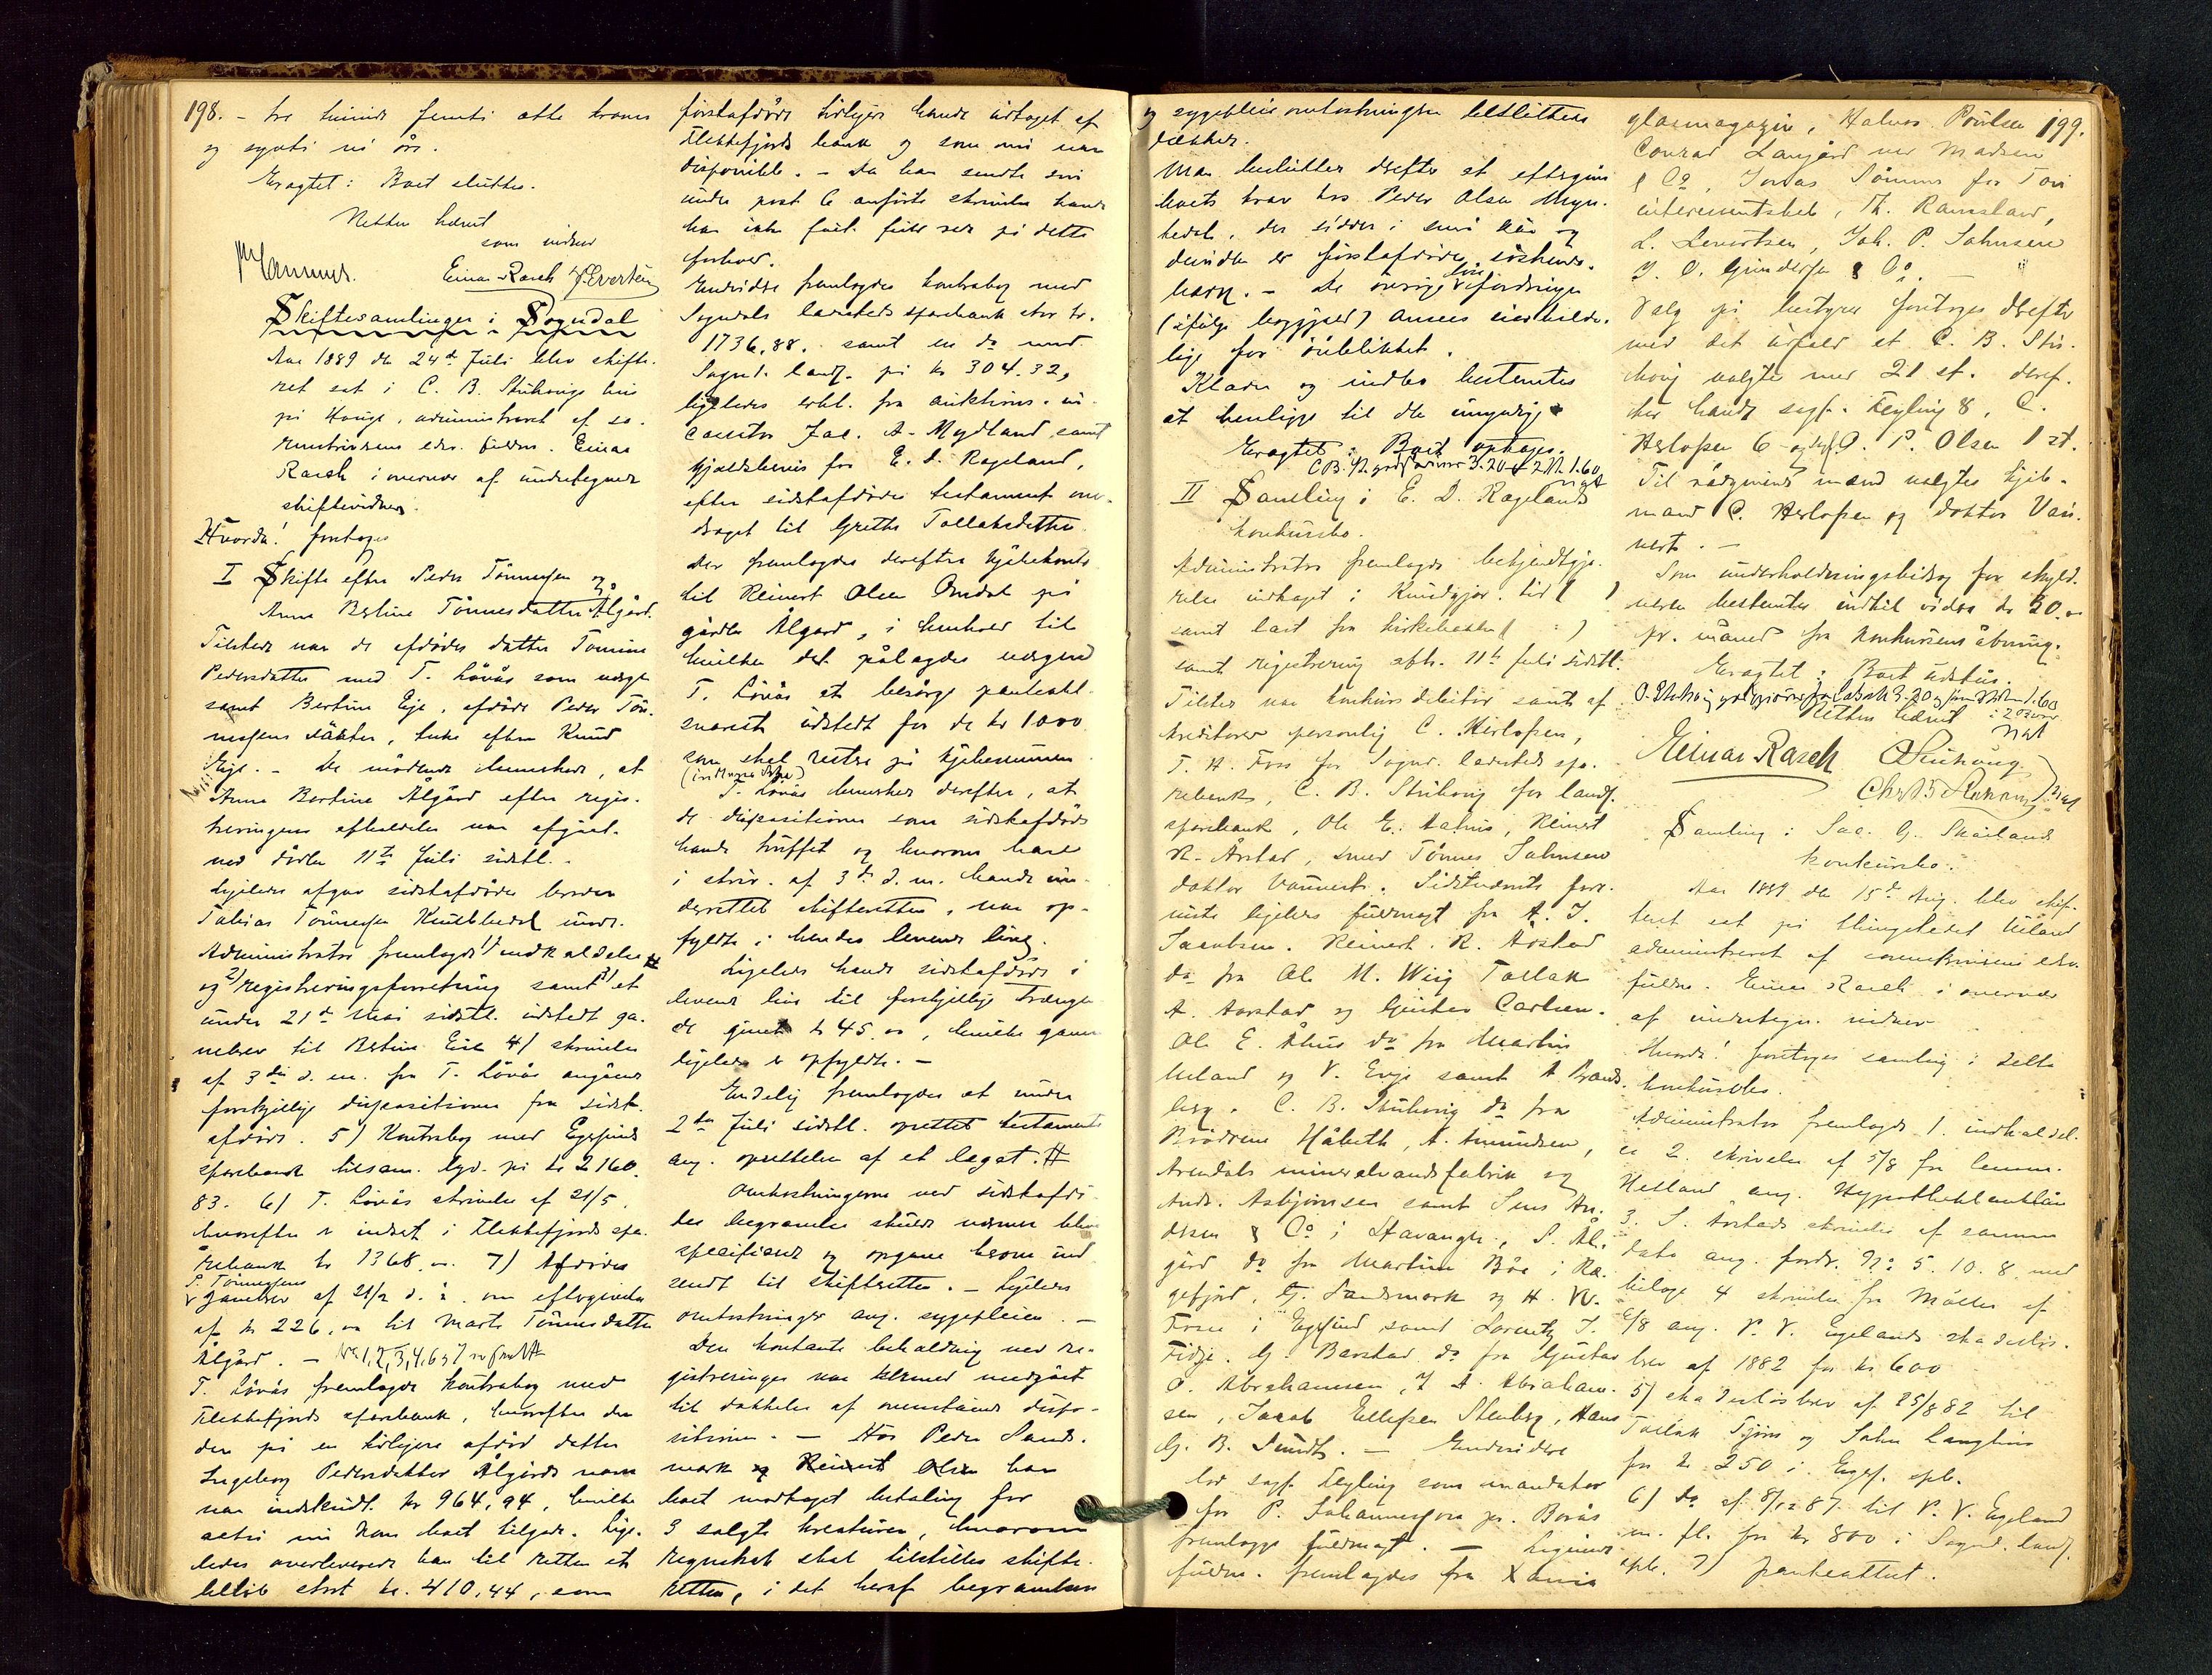 198. - tre tusinde femti otte kroner
og sytti ni øre.
Eragtet: Boet sluttes.
Retten hævet
som vidner
Einar Rasch
Skiftesamlinger i Sogndal
Aar 1889 den 24de Juli blev skifte-
ret sat i C. B. Stuhougs hus
på Houge, administreret af so-
renskriverens edsv. fuldm. Einar
Rasch i overvær af undertegnede
skiftevidner.
Hvorda! foretoges
I Skifte efter Peder Tønnessen og
Anna Bertine Tønnesdatter Ålgård.
Tilstede var de afdødes datter Tomine
Pedersdatter med T. Løvås som værge
samt Bertine Eje, afdøde Peder Tøn-
nessens søster, enke efter Knud
Eije. - De mødende bemerkede, at
Anna Bertine Ålgård efter regis-
treringens afholdelse var afgået
ved døden 11te Juli sidstl. -
Ligeledes afgav sidstafdødes broder
Tobias Tønnessen møde.
Administrator fremlagde 1) indkaldelse #
og 2) registreringsforretning samt 3) et
under 21de Mai sidstl. udstedt ga-
vebrev til Bertine Eie 4) skrivelse
af 3die d. m. fra T. Løvås angående
forskjellige dispositioner fra sidst-
afdøde. 5) Kontrabog med Egersunds
sparebank tilsam. lyd. på kr 2160.
83. 6) T. Løvås skrivelse af 21/5.
hvorefter er indsat i Flekkefjords spa-
rebank kr 1368. 7) Afdøde
P. Tønnessens
gavebrev af 21/2 d. å. om eftergivelse
af kr 226, til Marte Tønnesdatter
Ålgård. - No 1, 2, 3, 4, 6 & 7
T. Løvås fremlagde kontrabog med
Flekkefjords sparebank, hvorefter der
der på en tidligere afdød datter
Ingeborg Pedersdatter Ålgårds navn
var indskudt kr 964,94, hvilke
aktiv nu kom boet tilgode. Lige-
ledes overleverede han til retten et
beløb stort kr. 410,44, som
førstafdøde tidligere havde udtaget af
Flekkefjords bank og som nu var
disponibelt. - Da han sendte sin
under post 6 anførte skrivelse havde
han ikke fået fuld rede på dette
forhold.
Endvidere fremlagdes kontrabog med
Sogndals ladesteds sparebank stor kr.
1736,88. samt en do med
Sognd. landf. på kr 304.32,
ligeledes erkl. fra auktions-in-
cassator Jac. A. Mydland samt
Gjældsbevis for E. D. Rageland,
efter sidstafdødes testament over-
draget til Grethe Tollaksdatter
Der fremlagdes derefter kjøbekontr.
til Reinert Olsen Omdal på
gården Ålgard, i henhold til
hvilken det pålagdes værgen
T. Løvås at besørge panteobl.
snarest udstedt for de kr 1000
som skal restere på kjøbesummen
T. Løvås bemerkede derefter, at
de dispositioner som sidstafdøde
havde truffet og hvorom han
i skriv. af 3de d. m. havde un-
derrettet skifteretten, var op-
fyldte i hendes levende live.
Ligeledes havde sidstafdøde i
levende live til forskjellige trængen-
de givet kr 45, hvilke gaver
ligeledes er opfyldte. -
Endelig fremlagdes et under
2den Juli sidstl. oprettet testamente
ang. oprettelse af et legat. #
Omkostningerne ved sidstafdø-
des begravelse skulde nærmere blive
specificeret og opgave herom ind-
sendt til skifteretten. - Ligeledes
omkostninger ang. sygepleien. -
Den kontante beholdning ved re-
gistreringen var dermed medgået
til dækkelse af ovenstående dispo-
sitioner. - Hos Peder Sand-
mark og Reinert Olsen har
boet modtaget betaling for
3 solgte kreaturer, hvorom
regnskab skal tilstilles skifte-
retten, i det heraf begravelsen
og sygepleieomkostningen bestrittes
dækket.
Man beslutter derefter at eftergive
boets krav hos Peder Olsen
hedel, der sidder i små kår og
desuden er førstafdødes søskende-
barn. - De øvrige fordringer
(ifølge boggjæld) ansees uerholde-
lige for øieblikket.
Klæder og indbo bestemtes
at henligge til den umyndige
Eragtet: Boet optages.
II Samling i E. D. Ragelands
konkursbo.
Administrator fremlagde bekjendtgjø-
relse indtaget i Kundgjør. tid ( )
samt læst fra kirkebakken ( : )
samt registrering afh. 11te Juli sidstl.
Tilstede var konkursdebitor samt af
kreditorer personlig C. Herlofsen,
T. H. Foss for Sogn. ladesteds spa-
rebank, C. B. Stuhoug for landf.
sparebank, Ole E. Aahus, Reinert
R. Årstad, smed Tønnes Johnsen
doktor Vauvert. Sidstnævnte frem-
viste ligeledes fuldmagt fra A. J.
Jacobsen. Reinert R. Årstad
do fra Ole M. Wiig Tollak
A. Aarstad og Gustav Carlsen.
Ole E. Åhus do fra Martin
Ueland og V. Evje samt A. Brands-
berg. C. B. Stuhoug do fra
Brødrene Håbeth, A. Amundsen,
Arendals mineralvandsfabrik og
Andr. Asbjørnsen samt Sens An-
dersen & Co i Stavanger, S. Ål-
gård do fra Martin Bøe i Ra-
gefjord, G. Sandsmark og H. W.
Friis i Egersund samt Lorentz J.
Fidje. G. Barstad do fra Gustav
O. Abrahamsen, J. A. Abraham-
sen, Jacob Ellefsen Stenberg, Hans
G. B. Sundt. - Endvidere
lod sagf. Feyling som mandatar
for P. Johannesson pr. Borås
fremlægge fuldmagt. - Ligeledes
fuldm. fremlagdes fra Xania
glasmagazin, Halvor Poulsen 199.
Conrad Langård ved Madsen
& Co, Jonas Tømme for Tou
interessentskab, Th. Ramsland,
L. Levortsen, Joh. P. Johnsen
J. O. Gundersen & Co. -
Valg på bestyrer foretoges derefter
med det udfald at C. B. Stu-
houg valgtes med 21 st. deref-
ter havde sagf. Feyling 8, C.
Herlofsen 6 og O. P. Olsen 1 st.
Til rådgivende mænd valgtes kjøb-
mand C. Herlofsen og doktor Vau-
vert. -
Som underholdningsbidrag for skyld-
neren bestemtes indtil videre kr 30.
pr. måned fra konkursens åbning.
Eragtet: Boet udstår.
Retten hævet
Einar Rasch OStuhoug
Chr B Stuhoug
Samling i Jac. G. Skailands
konkursbo.
Aar 1889 den 15de Aug. blev skif-
teret sat på thingstedet Ueland
administreret af sorenskriverens edsv.
fuldm. Einar Rasch i overvær
af undertegn. vidner
Hvorda! foretoges samling i dette
konkursbo.
Administrator fremlagde 1. indkaldel-
se 2. skrivelse af 5/8 fra lensm.
Hetland ang. Hypothekbanklån
3. S. Årstads skrivelse af samme
dato ang. fordr. No 5. 10. 8 med
bilage 4 skrivelse fra Møller af
6/8 ang. P. V. Egelands skadesløs-
brev af 1882 for kr 600
5) skadesløsbrev af 25/8 82 til
Tollak Tjørn og John Langhus
for kr 250 i Egers. spb.
6) do af 8/12 87 til P. V. Egeland
m. fl. for kr 800 i Sognd. landf.
spb. 7) panteattest.